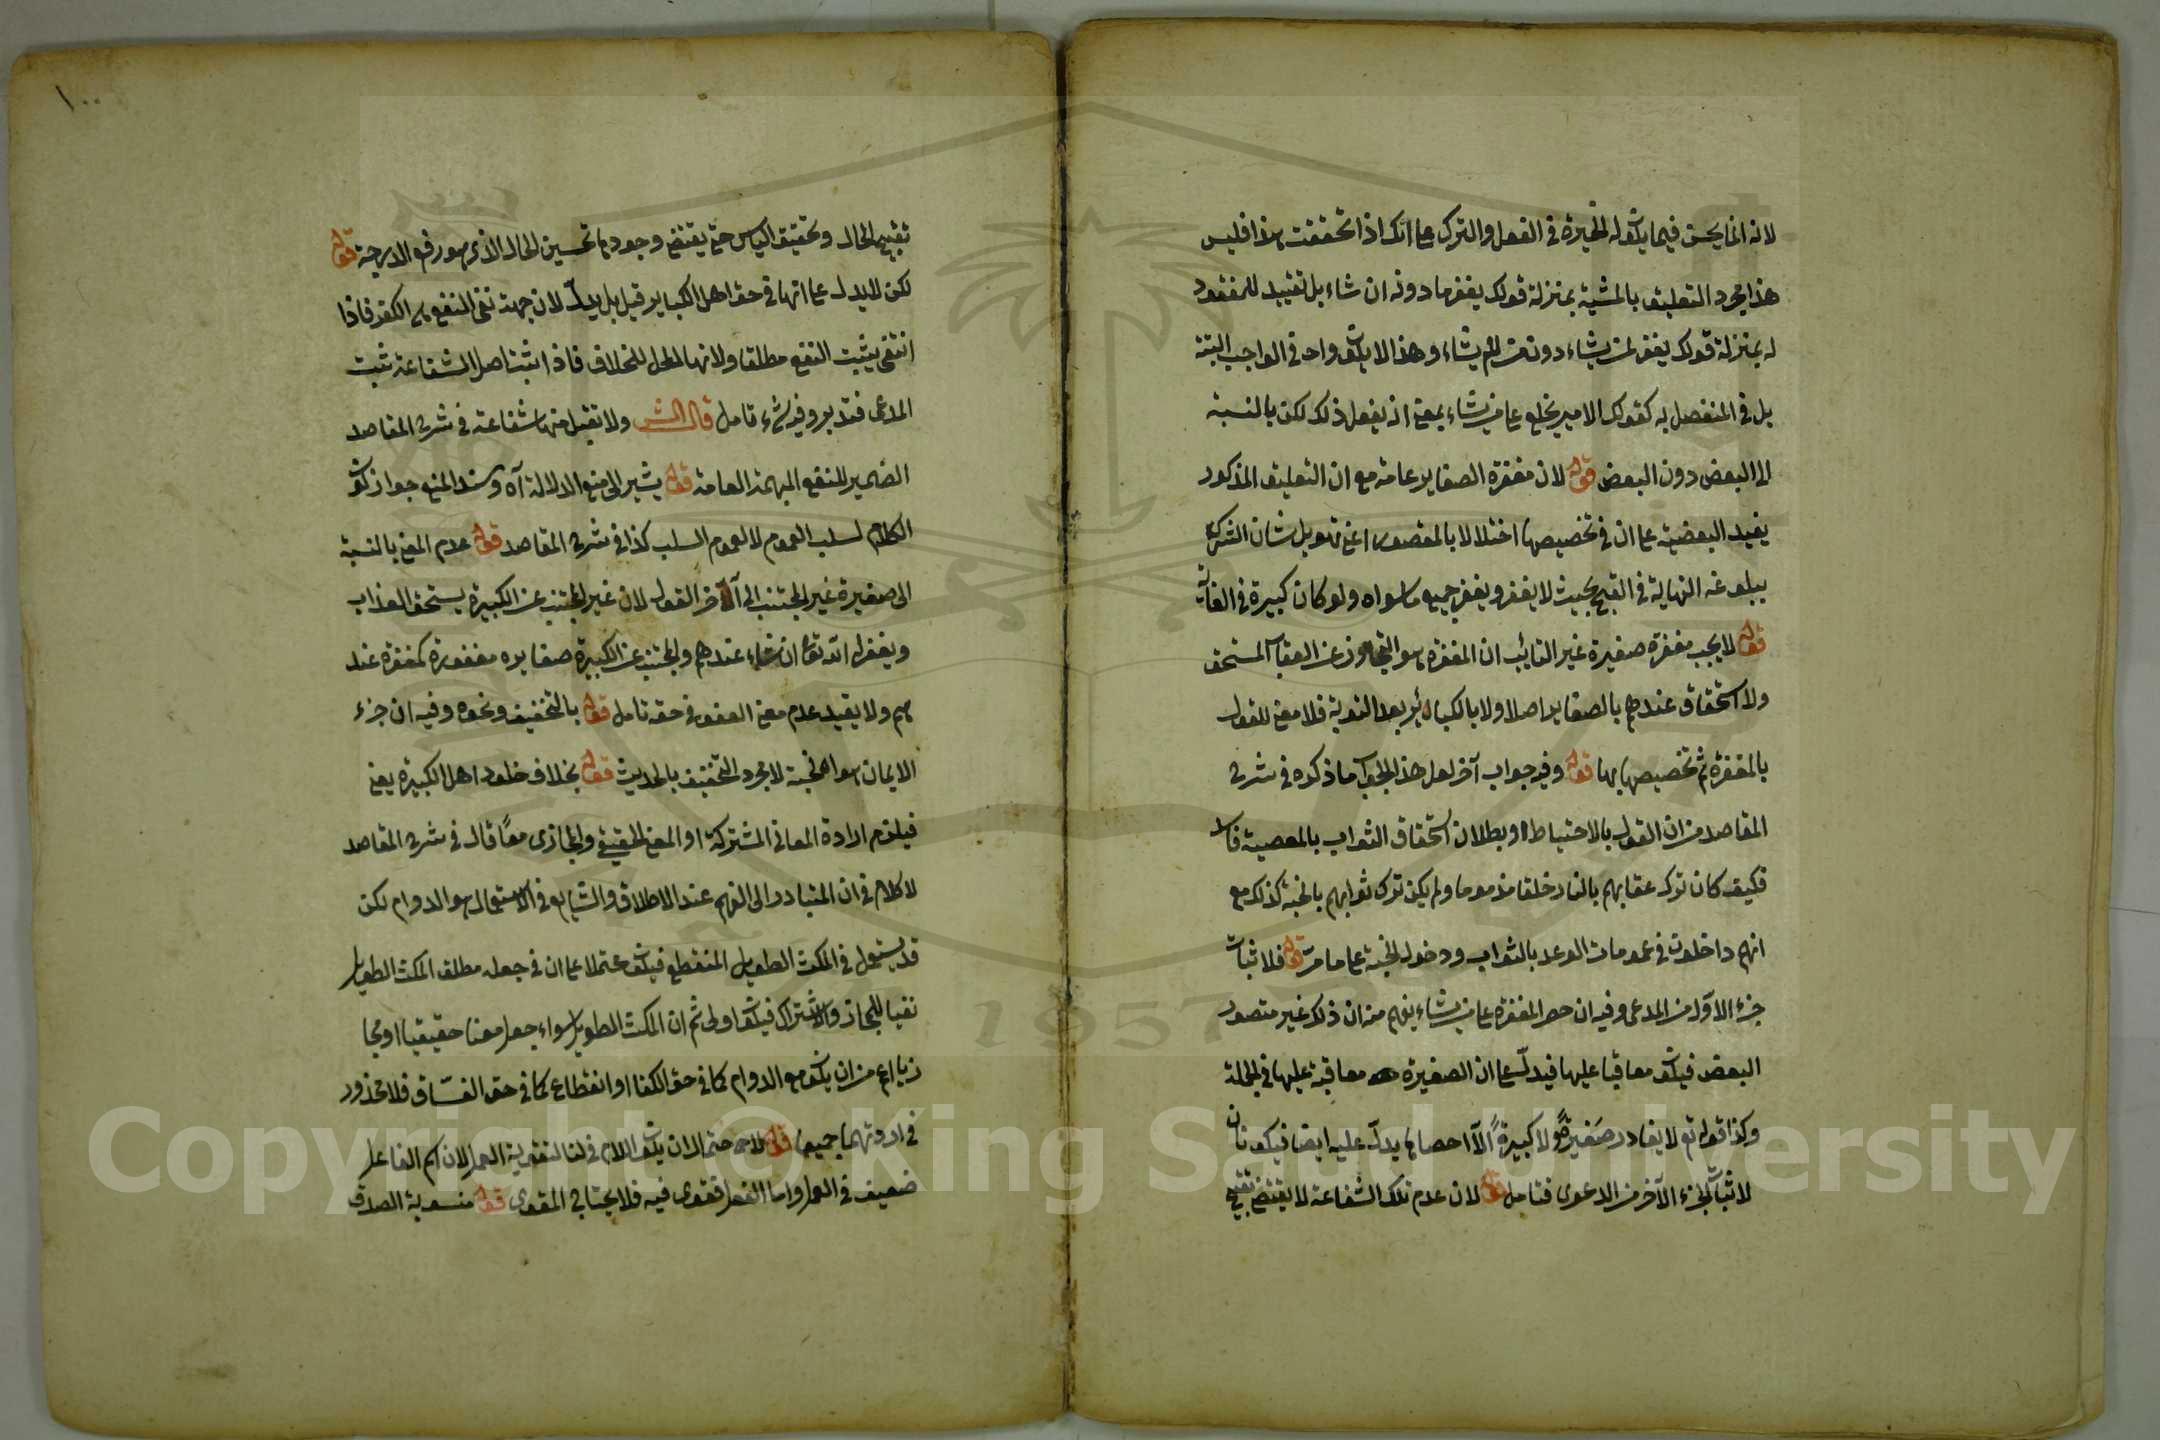 لانه انما يحسن فيما يكون له الخيرة في الفعل والترك على انك اذا تحققت هذا فليس
هذا مجرد التعليق بالمشية بمنزلة قولك يغفر ما دونه ان شاء بل تقييد للمغفور
له بمنزلة قولك يغفر لمن يشاء دون من لم يشاء وهذا لا يكون واحد في الواجب البتة
بل في المتفضل به كقولك الامير يخلع على من يشاء بمعنى انه يفعل ذلك لكن بالنسبة
الى البعض دون البعض قوله لان مغفرة الصغاير عامة مع ان التعليق المذكور
يفيد البعضية على ان في تخصيصها اختلالا بالمقصود اعني تهويل شان الشرك
ببلوغه النهاية في القبح بحيث لا يغفر ويغفر جميع ما سواه ولو كان كبيرة في الغاية
قوله لا يجب مغفرة صغيرة غير التائب ان المغفرة هو التجاوز عن العقاب المستحق
ولا استحقاق عندهم بالصغاير اصلا ولا بالكبائر بعد التوبة فلا معنى للقول
بالمغفرة ثم تخصيصها بها قوله وفيه جواب آخر لعل هذا الجواب ما ذكره في شرح
المقاصد من ان القول بالاحتباط وبطلان استحقاق الثواب بالمعصية فاسد
فكيف كان ترك عقابهم بالنار خلفا مذموما ولم يكن ترك ثوابهم بالجنة كذلك مع
انهم داخلون في عمومات الوعد بالثواب ودخول الجنة على ما مر قوله فلا ثبات
جزء الاول من المدعى وفيه ان حصر المغفرة على من يشاء يفهم منه ان ذلك غير متصور
البعض فيكون معاقبا عليها فيدل على ان الصغيرة معاقبة عليها في الجملة
وكذا قوله تع لا يغادر صغيرة ولا كبيرة الا احصاها يدل عليه ايضا فيكونان
لاثبات الجزء الآخر من الدعوى فتامل قوله لان عدم تلك الشفاعة لا يقتضي تقبيح
١٠٠
تقبيح الحال وتحقيق الياس حتى يقتضي وجودها تحسين الحال الذي هو رفع الدرجة قوله
لكن لا يدل على انها في حق اهل الكباير قيل بل يدل لان جهة نفي النفع هي الكفر فاذا
انتفى يثبت النفع مطلقا ولانها المحل للخلاف فاذا اثبتنا اصل الشفاعة ثبت
المدعى فتدبر وفيه شيء تامل قال الش ولا تقبل منها شفاعة في شرح المقاصد
الضمير للنفع المبهمة العامة قوله يشير الى منع الدلالة آه وسند المنع جواز كون
الكلام لسلب العموم لا لعموم السلب كذا في شرح المقاصد قوله عدم المعنى بالنسبة
الى صغيرة غير المجتنب الى آخر القول لان غير المجتنب عن الكبيرة يستحق العذاب
ويغفر له الله تعالى ان شاء عندهم والمجتنب عن الكبيرة صغايره مغفورة كمغفرة عند
هم ولا يفيد عدم معنى العفو في حقه تامل قوله بالتخفيف ونحوه وفيه ان جزء
الايمان هو الجنة لا مجرد التخفيف بالحديث قوله بخلاف خلود اهل الكبيرة يعني
فيلزم ارادة المعاني المشتركة او المعنى الحقيقي والمجازي معًا قال في شرح المقاصد
لا كلام في ان المتبادر الى الفهم عند الاطلاق والشايع في الاستعمال هو الدوام لكن
قد يستعمل في المكث الطويل المنقطع فيكون محتملا على ان في جعله مطلق المكث الطويل
نفيا للمجاز والاشتراك فيكون اولى ثم ان المكث الطويل سواء جعل معنا حقيقيا او مجا
زيا اعم من ان يكون مع الدوام كما في حق الكفار او انقطاع كما في حق الفساق فلا محذور
في ارادتهما جميعا قوله لاحتمال ان يكون اللام في لنا لتقوية العمل لان اسم الفاعل
ضعيف في العمل واما الفعل فقوى فيه فلا يحتاج المقوى قوله منسوبة الصدق